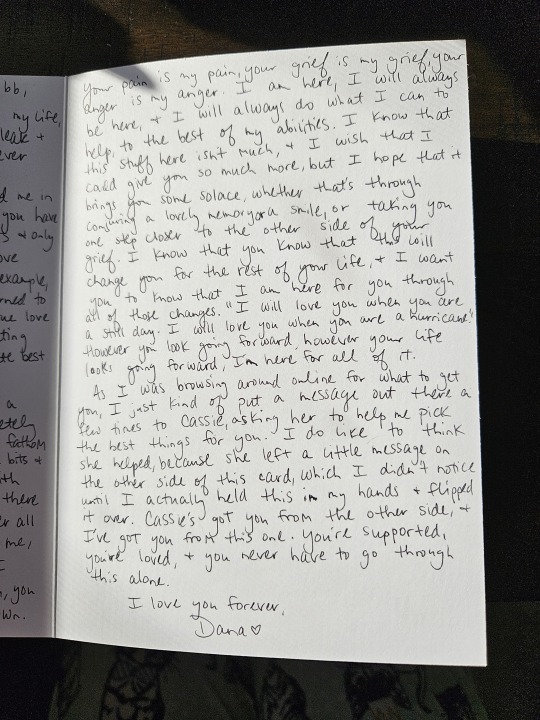 bb,
my life,
leak +
ever
d me in
you have
s + only
ove
example,
rned to
me love
ting
te best
a
etely
fathom
bits +
ith
there
er all
me,
I
n, you
wn.
Your pain is my pain, your grief is my grief, your
anger is my anger. I am here, I will always
be here, + I will always do what I can to
help, to the best of my abilities. I know that
this stuff here isn't much, + I wish that I
could give you so much more, but I hope that it
brings you some solace, whether that's through
conjuring a lovely memory or a smile, or taking you
one step closer to the other side of your
grief. I know that you know that this will
change you for the rest of your life, + I want
you to know that I am here for you through
all of those changes. "I will love you when you are
a still day. I will love you when you are a hurricane."
However you look going forward, however your life
looks going forward, I'm here for all of it.
As I was browsing around online for what to get
you, I just kind of put a message out there a
few times to Cassie, asking her to help me pick
the best things for you. I do like to think
she helped, because she left a little message on
the other side of this card, which I didn't notice
until I actually held this in my hands + flipped
it over. Cassie's got you from the other side, +
I've got you from this one. You're supported,
you're loved, + you never have to go through
this alone.
I love you forever,
Dana ♡